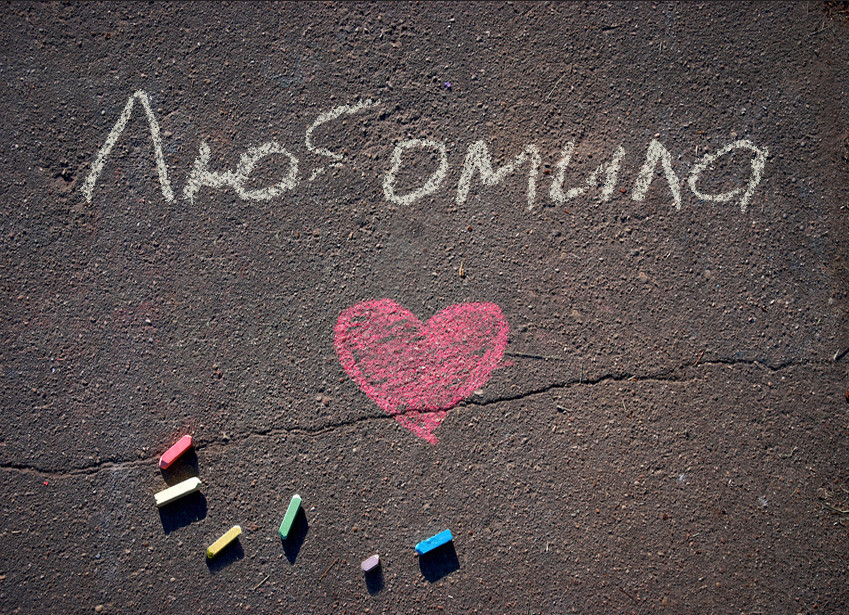 Любомила